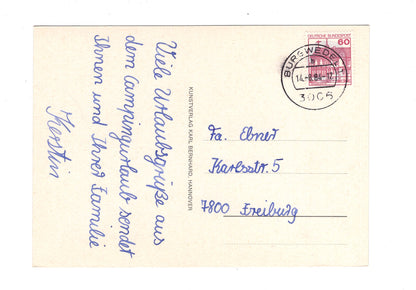 Viele Urlaubsgrüße aus
dem Campingurlaub sendet
Ihnen und Ihrer Familie
Kerstin
KUNSTVERLAG KARL BERNHARD, HANNOVER
DEUTSCHE BUNDESPOST
60
BURGWEDEL 1
14.-8.84-17
3006
Fa. Ebner
Karlsstr. 5
7800 Freiburg